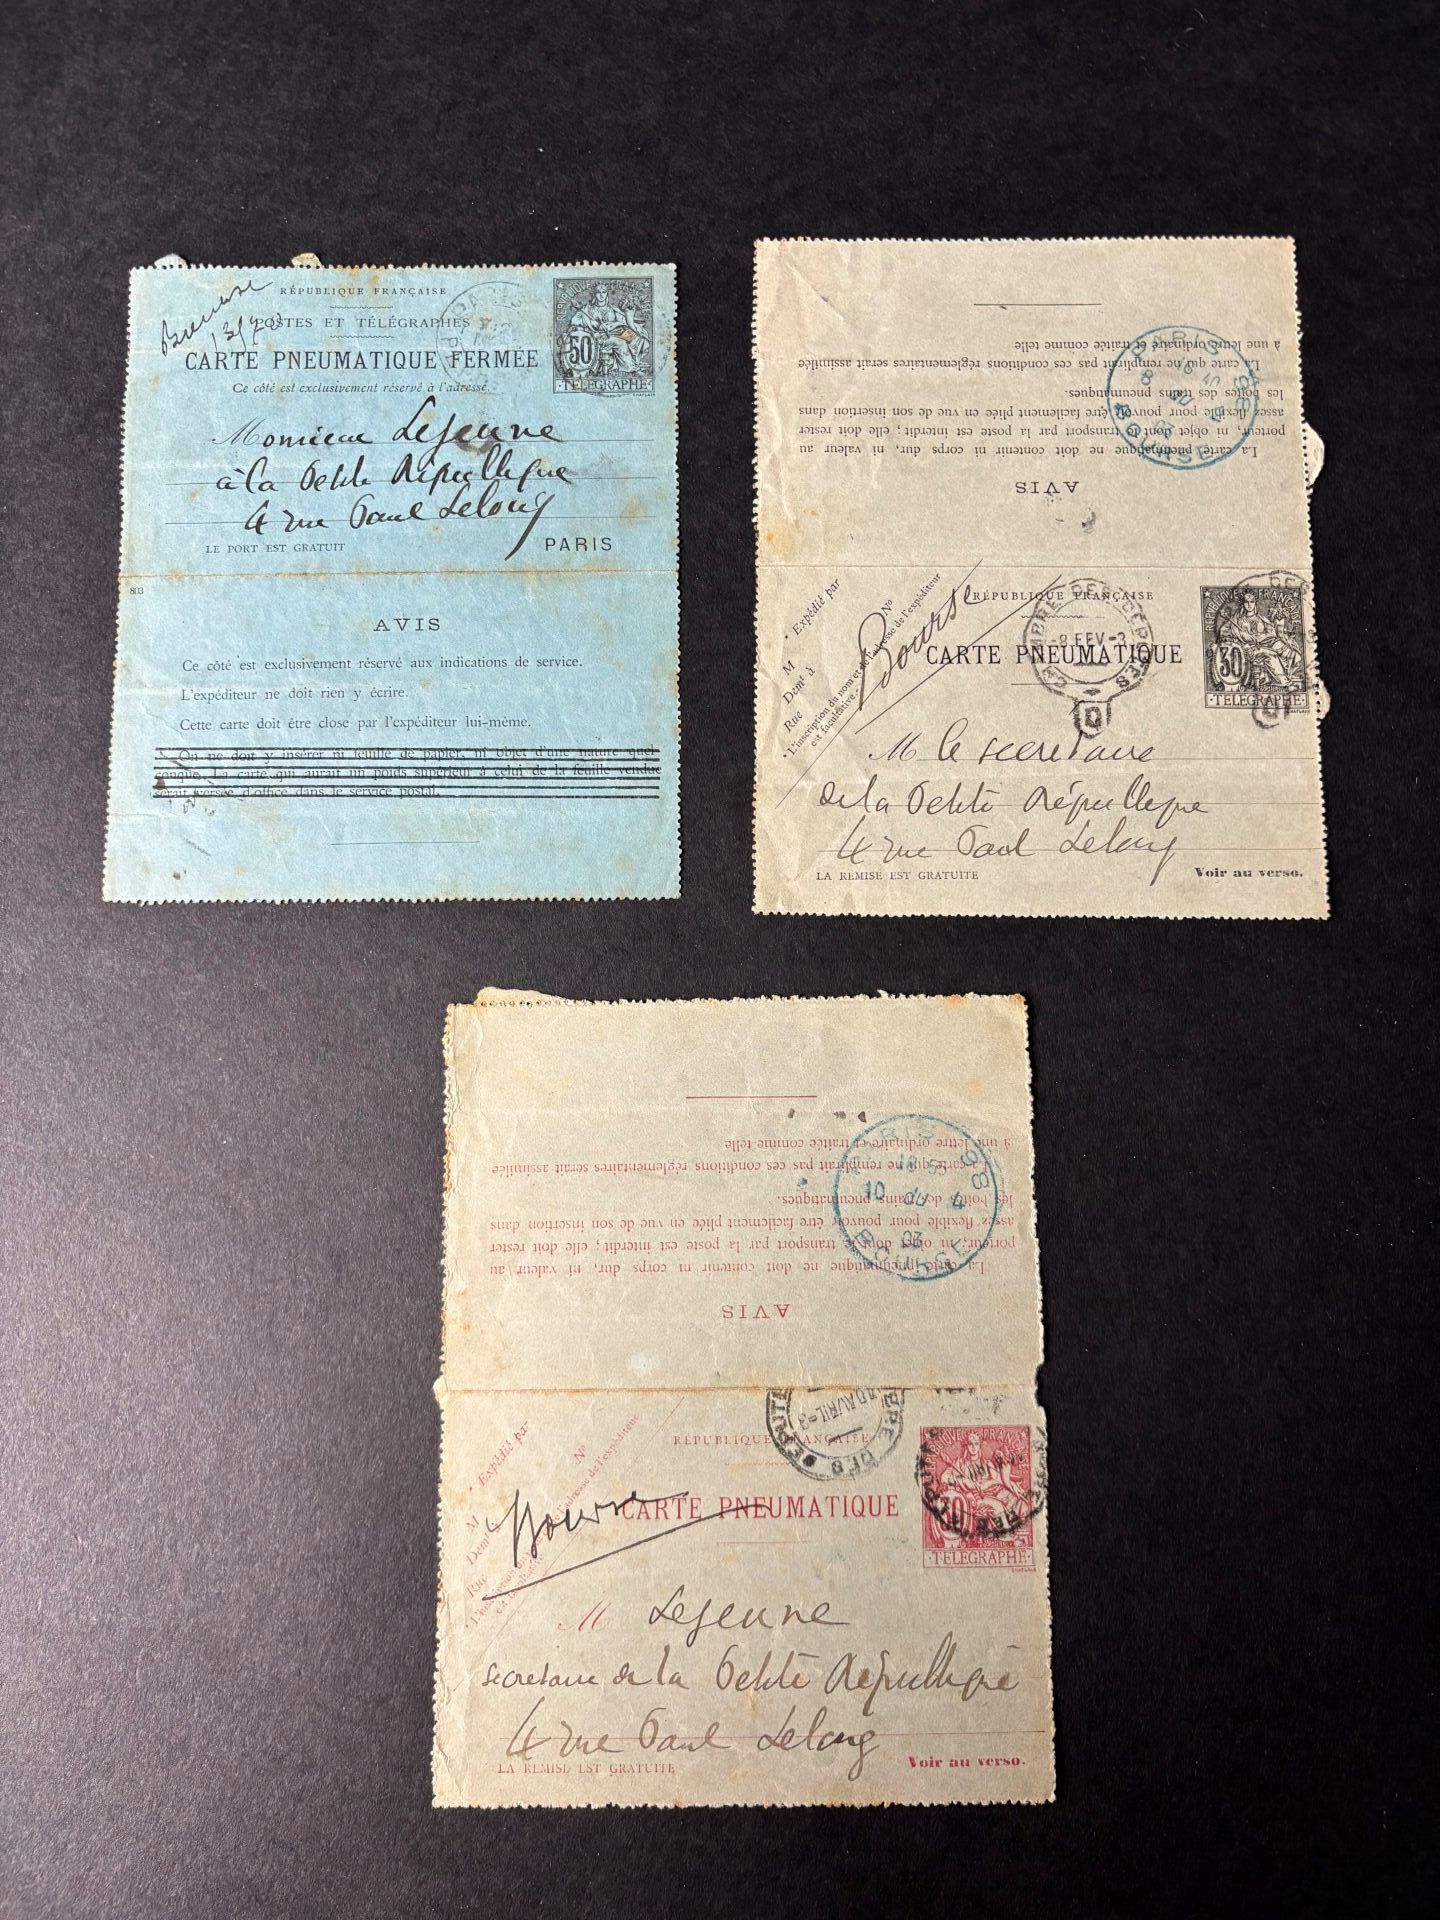 Bourse
RÉPUBLIQUE FRANÇAISE
POSTES ET TÉLÉGRAPHES
CARTE PNEUMATIQUE FERMÉE
Ce côté est exclusivement réservé à l'adresse.
RÉPUBLIQUE FRANÇAISE
50
TÉLÉGRAPHE
CHAPLAIN
Monsieur Lejeune
à la Petite République
4 rue Paul Lelong
LE PORT EST GRATUIT
PARIS
803
AVIS
Ce côté est exclusivement réservé aux indications de service.
L'expéditeur ne doit rien y écrire.
Cette carte doit être close par l'expéditeur lui-même.
On ne doit y insérer ni feuille de papier, ni objet d'une nature quel-
conque. La carte qui aurait un poids supérieur à celui de la feuille vendue
serait versée d'office dans le service postal.
AVIS
La carte pneumatique ne doit contenir ni corps dur, ni valeur au
porteur, ni objet dont le transport par la poste est interdit; elle doit rester
assez flexible pour pouvoir être facilement pliée en vue de son insertion dans
les boîtes des trains pneumatiques.
La carte qui ne remplirait pas ces conditions réglementaires serait assimilée
à une lettre ordinaire et traitée comme telle
PARIS 98
8
03
BOURSE
Expédié par
M
Demt à
Rue
No
L'inscription du nom et de l'adresse de l'expéditeur
est facultative.
Bourse
RÉPUBLIQUE FRANÇAISE
CARTE PNEUMATIQUE
CHAMBRE DES DÉPUTÉS
-8 FEV -3
RÉPUBLIQUE FRANÇAISE
30
TÉLÉGRAPHE
CHAPLAIN
M le secretaire
de la Petite République
4 rue Paul Lelong
LA REMISE EST GRATUITE
Voir au verso.
AVIS
La carte pneumatique ne doit contenir ni corps dur, ni valeur au
porteur, ni objet dont le transport par la poste est interdit; elle doit rester
assez flexible pour pouvoir être facilement pliée en vue de son insertion dans
les boîtes des trains pneumatiques.
La carte qui ne remplirait pas ces conditions réglementaires serait assimilée
à une lettre ordinaire et traitée comme telle
PARIS 98
10
4
03
BOURSE
Expédié par
M
Demt
Rue
No
l'adresse de l'expéditeur
Bourse
RÉPUBLIQUE FRANÇAISE
CARTE PNEUMATIQUE
10 AVRIL -3
30
TÉLÉGRAPHE
CHAPLAIN
M Lejeune
secretaire de la Petite République
4 rue Paul Lelong
LA REMISE EST GRATUITE
Voir au verso.